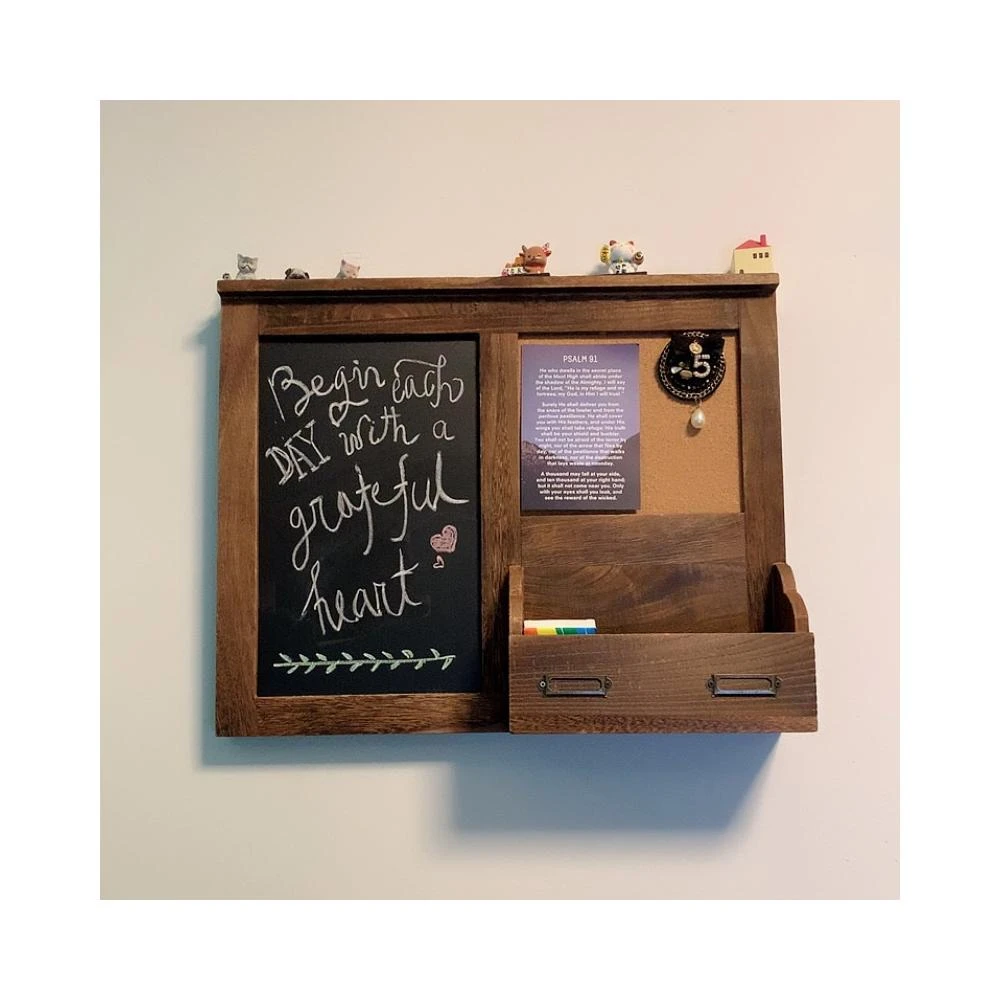 Begin each
DAY with a
grateful
heart
PSALM 91
He who dwells in the secret place
of the Most High shall abide under
the shadow of the Almighty. I will say
of the Lord, "He is my refuge and my
fortress; my God, in Him I will trust."
Surely He shall deliver you from
the snare of the fowler and from the
perilous pestilence. He shall cover
you with His feathers, and under His
wings you shall take refuge; His truth
shall be your shield and buckler.
You shall not be afraid of the terror by
night, nor of the arrow that flies by
day, nor of the pestilence that walks
in darkness, nor of the destruction
that lays waste at noonday.
A thousand may fall at your side,
and ten thousand at your right hand;
but it shall not come near you. Only
with your eyes shall you look, and
see the reward of the wicked.
5